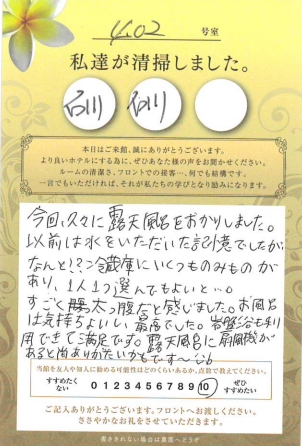 402 号室
私達が清掃しました。
石川 石川
本日はご来館、誠にありがとうございます。
より良いホテルにする為に、ぜひあなた様の声をお聞かせください。
ルームの清潔さ、フロントでの接客…、何でも結構です。
一言でもいただければ、それが私たちの学びとなり励みになります。
今回、久々に露天風呂をおかりしました。
以前は水をいただいた記憶でしたが、
なんと!?冷蔵庫にいくつものみものが
あり、1人1つ選んでもよいと…。
すごく太っ腹だと感じました。お風呂
は気持ちよいし、最高でした。岩盤浴も利
用できて満足です。露天風呂に扇風機が
あると尚ありがたいかもです〜
当館を友人や知人に勧める可能性はどのくらいあるか、点数で教えてください。
すすめたくない 0 1 2 3 4 5 6 7 8 9 10 ぜひすすめたい
ご記入ありがとうございます。フロントへお渡しください。
ささやかなお礼をさせていただきます。